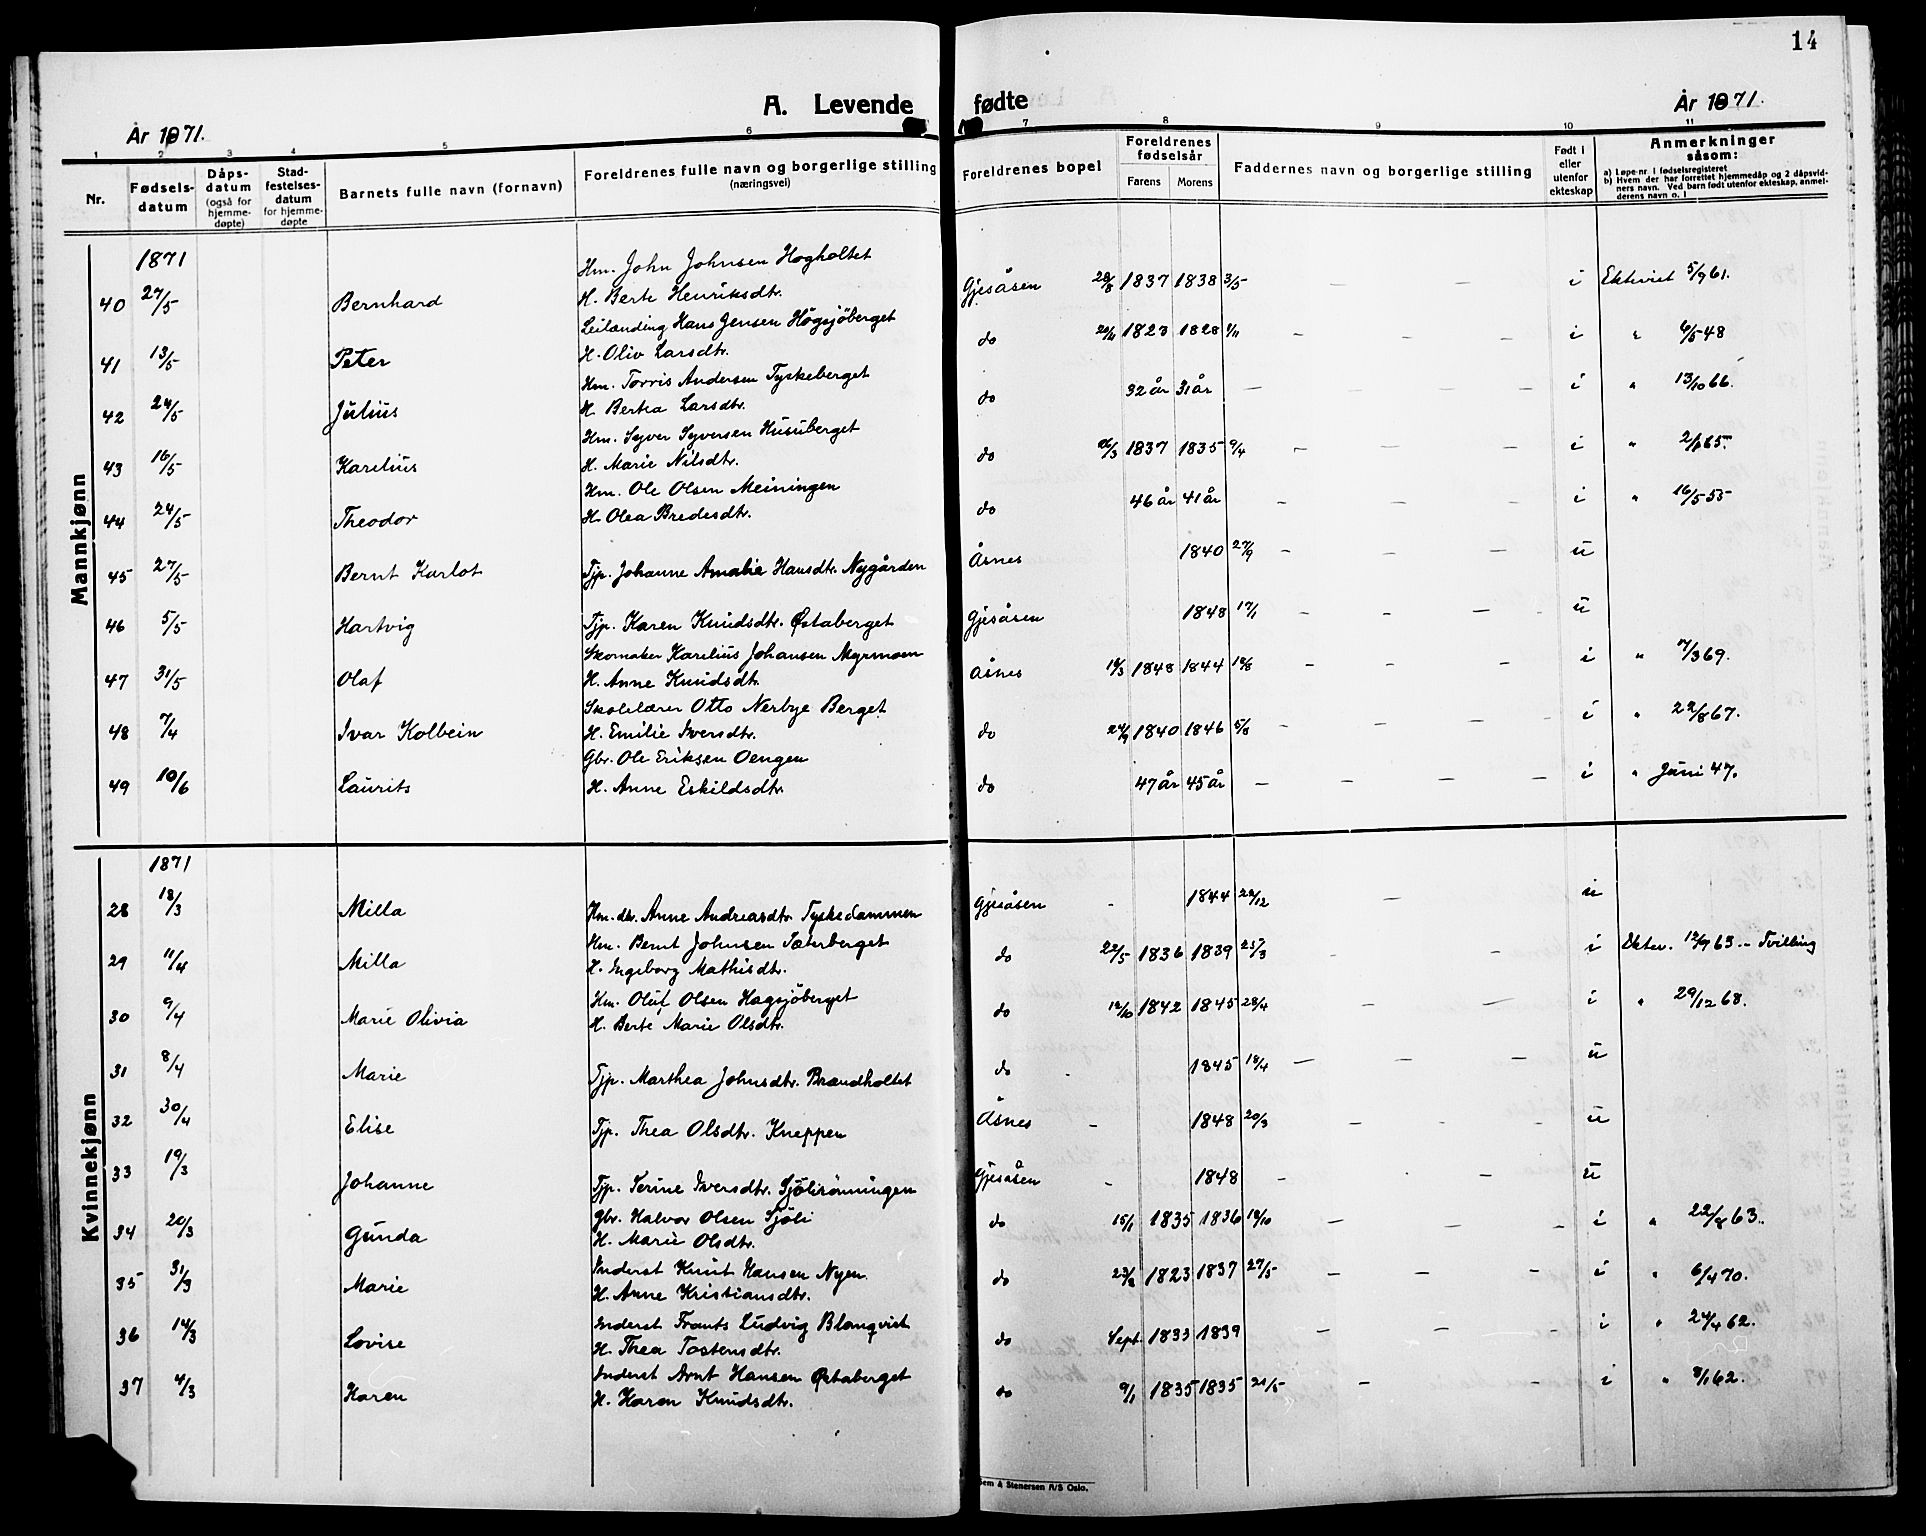 14
A. Levende fødte
År 1871.
År 1871.
1 2 3 4 5 6 7 8 9 10 11
Nr.
Fødsels-datum
Dåps-datum (også for hjemme-døpte)
Stad-festelses-datum for hjemme-døpte
Barnets fulle navn (fornavn)
Foreldrenes fulle navn og borgerlige stilling (næringsvei)
Foreldrenes bopel
Foreldrenes fødselsår
Farens Morens
Faddernes navn og borgerlige stilling
Født i eller utenfor ekteskap
Anmerkninger såsom:
a) Løpe-nr. i fødselsregisteret
b) Hvem der har forrettet hjemmedåp og 2 dåpsvidners navn. Ved barn født utenfor ekteskap, anmelderens navn o. l
Mannkjønn
1871
Hm. John Johnsen Hogholtet
40 27/5 Bernhard H. Berte Henriksdtr. Gjesåsen 28/8 1837 1838 3/5 – – – i Ekteviet 5/9 61.
Leilending Hans Jensen Högsjöberget
41 13/5 Peter H. Oliv Larsdtr. do 20/11 1823 1828 1/11 – – – i " 6/5 48
Hm. Torris Andersen Tyskeberget
42 24/5 Julius H. Bertea Larsdtr. do 32 år 31 år – – – i " 13/10 66.
Hm. Syver Syversen Husuberget
43 16/5 Karelius H. Marie Nilsdtr. do 26/3 1837 1835 9/4 – – – i "
Hm. Ole Olsen Meiningen
44 24/5 Theodor H. Olea Bredesdtr. do 46 år 41 år – – – i " 16/5 55
45 27/5 Bernt Karlot Tjp. Johanne Amalie Hansdtr. Nygården Åsnes 1840 27/9 – – – u
46 5/5 Hartvig Tjp. Karen Knudsdtr. Østaberget Gjesåsen 1848 17/1 – – – u
Skomaker Karelius Johansen Myrmoen
47 31/5 Olaf H. Anne Knudsdtr. Åsnes 1848 1844 – – – i " 7/3 69.
Skolelærer Otto Nerbye Berget
48 7/4 Ivar Kolbein H. Emilie Iversdtr. do 24/9 1840 1846 5/8 – – – i " 22/8 67.
Gbr. Ole Eriksen Oengen
49 10/6 Laurits H. Anne Eskildsdtr. do 47 år 45 år – – – i " Juni 47.
Kvinnekjønn
1871
28 18/3 Milla Hm. dtr. Anne Andreasdtr. Tyskedammen Gjesåsen - 1844 28/12 – u
Hm. Bernt Johnsen Sæterberget
29 11/4 Milla H. Ingeborg Mathisdtr. do 22/5 1836 1839 25/3 – i Ektev. 12/9 63. – Tvilling
Hm. Oluf Olsen Hagsjöberget
30 9/4 Marie Olivia H. Berte Marie Olsdtr. do 12/10 1842 1845 28/4 – – – i " 29/12 68.
31 8/4 Marie Tjp. Marthea Johnsdtr. Brandholtet do 1845 18/4 – – – u
32 30/4 Elise Tjp. Thea Olsdtr. Kneppen Åsnes - 1848 20/3 – – – u
33 19/3 Johanne Tjp. Serine Iversdtr. Sjölirönningen Gjesåsen - 1848 – – – u
Gbr. Halvor Olsen Sjöli
34 20/3 Gunda H. Marie Olsdtr. do 15/1 1835 1836 18/10 – – – i " 22/8 63.
Inderst Knut Hansen Nyen.
35 31/3 Marie H. Anne Kristiansdtr. do 23/8 1823 1837 27/5 – – – i " 6/4 70.
Inderst Frants Ludvig Blanqvist
36 14/3 Lovise H. Thea Tostensdtr. do Sept. 1833 1839 – – – i " 24/4 62.
Inderst Arnt Hansen Østaberget
37 4/3 Karen H. Karen Knudsdtr. do 9/1 1835 1835 21/5 – – – i "
Sem & Stenersen A/S Oslo.